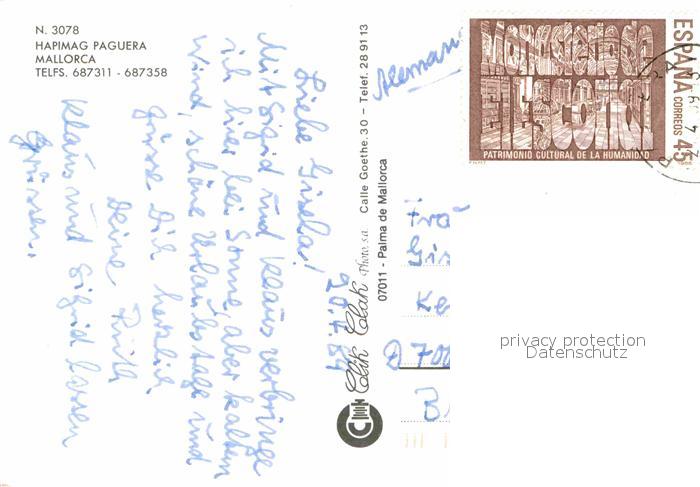 N. 3078
HAPIMAG PAGUERA
MALLORCA
TELFS. 687311 - 687358
20.4.89
Liebe Gisela!
Mit Sigrid und Klaus verbringe
ich hier bei Sonne, aber kaltem
Wind, schöne Urlaubstage und
grüsse Dich herzlich.
Deine
Klaus und Sigrid lassen
grüssen..
Clik Clak Photo s.a. Calle Goethe. 30 – Telef. 28 91 13
07011 - Palma de Mallorca
Monasterio de
El Escorial
PATRIMONIO CULTURAL DE LA HUMANIDAD
ESPAÑA
CORREOS 45
Frau
Gis
Ke
D 700
B
privacy protection
Datenschutz